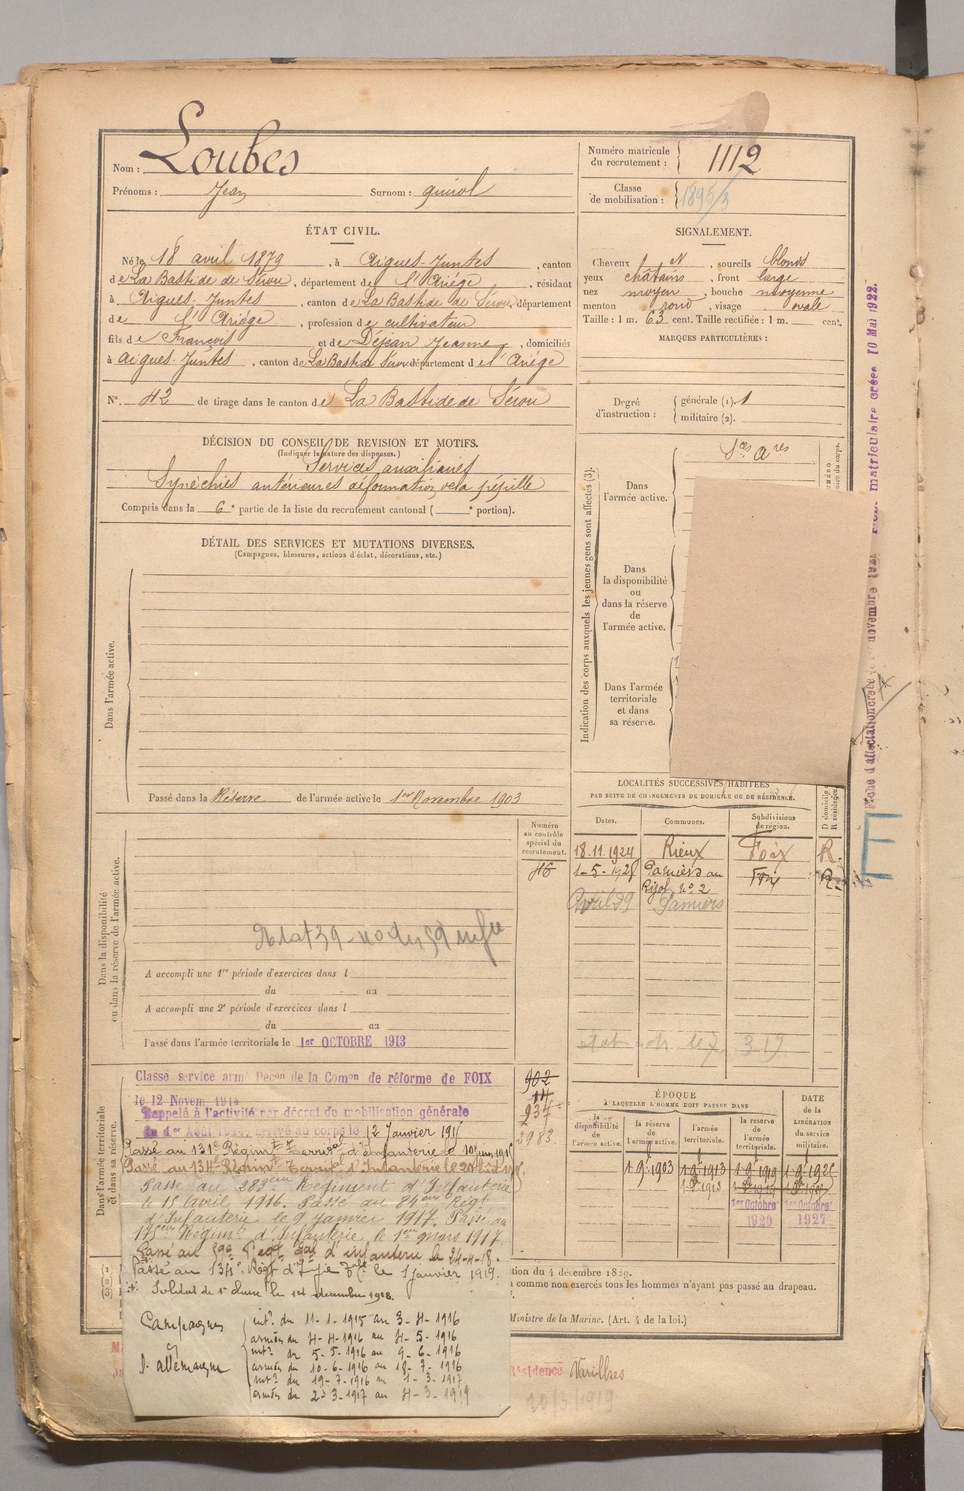 Nom : Loubes
Prénoms : Jean Surnom : quirol
Numéro matricule du recrutement : 1112
Classe de mobilisation :
ÉTAT CIVIL.
Né le 18 avril 1879, à Aigues-Juntes, canton
de La Bastide de Sérou, département de l'Ariège, résidant
à Aigues-Juntes, canton de La Bastide de Sérou, département
de l'Ariège, profession de cultivateur
fils de François et de Déjean Jeanne, domiciliés
à Aigues-Juntes, canton de La Bastide Sérou département de l'Ariège
N° 42 de tirage dans le canton de La Bastide de Sérou
SIGNALEMENT.
Cheveux N, sourcils blonds
yeux châtains, front large
nez moyen, bouche moyenne
menton rond, visage ovale
Taille : 1 m. 63 cent. Taille rectifiée : 1 m. cent.
MARQUES PARTICULIÈRES :
Degré d'instruction : générale (1). 1
militaire (2).
DÉCISION DU CONSEIL DE REVISION ET MOTIFS.
(Indiquer la nature des dispenses.)
Services auxiliaires
Synéchies antérieures déformation de la pupille
Compris dans la 6e partie de la liste du recrutement cantonal ( e portion).
DÉTAIL DES SERVICES ET MUTATIONS DIVERSES.
(Campagnes, blessures, actions d'éclat, décorations, etc.)
Dans l'armée active.
Passé dans la Réserve de l'armée active le 1er Novembre 1903
Indication des corps auxquels les jeunes gens sont affectés (3).
Sces Ares
Dans l'armée active.
Dans la disponibilité ou dans la réserve de l'armée active.
Dans l'armée territoriale et dans sa réserve.
Fiche d'affectation créée novembre matriculaire créée 10 Mai 1922.
E
Numéro au contrôle spécial du recrutement.
46
Dans la disponibilité ou dans la réserve de l'armée active.
A accompli une 1re période d'exercices dans l
du au
A accompli une 2e période d'exercices dans l
du au
Passé dans l'armée territoriale le 1er OCTOBRE 1913
LOCALITÉS SUCCESSIVES HABITÉES
PAR SUITE DE CHANGEMENTS DE DOMICILE OU DE RÉSIDENCE.
Dates. Communes. Subdivisions de région. D domicile R résidence
18.11.1924 Rieux Foix R.
1-5-192 Pamiers au Foix R.
n° 2
Avril 39 Pamiers
Dans l'armée territoriale et dans sa réserve.
Classé service armé Décon de la Comon de réforme de FOIX
le 12 Novem 1914
Rappelé à l'activité par décret de mobilisation générale
du 1er Août 1914, arrivé au corps le 12 Janvier 191
Passé au 131e Régiment Terral d'Infanterie le
Passé au 134e Régiment Terral d'Infanterie le
Passé au 283ème Régiment d'Infanterie
le 15 Avril 1916. Passé au 84ème Régt
d'Infanterie le 9 janvier 1917. Passé au
175ème Régimt d'Infanterie le 1er mars 1917
Passé au d'infanterie le 24-4-18.
Passé au 134e Régt d'Iie Tle le 1 janvier 1919.
Soldat de 1e classe le 14 décembre 1918.
902
14
934
2983
Campagnes
c
l'allemagne
intr du 11-1-1915 au 3-4-1916
armées du 4-4-1916 au 4-5-1916
intr du 5-5-1916 au 9-6-1916
armées du 10-6-1916 au 18-7-1916
intr du 19-7-1916 au 1-3-1917
armées du 2-3-1917 au 4-3-1919
ÉPOQUE
À LAQUELLE L'HOMME DOIT PASSER DANS
la disponibilité de l'armée active. la réserve de l'armée active. l'armée territoriale. la réserve de l'armée territoriale.
DATE de la LIBÉRATION du service militaire.
1-9bre 1903 1-9bre 1913 1-9bre 1919 1-9bre 1925
1er Octobre 1920
1er Octobre 1927
tion du 4 décembre 1889.
comme non exercés tous les hommes n'ayant pas passé au drapeau.
Ministre de la Marine. (Art. 4 de la loi.)
Résidence Varilhes
20/3/1919